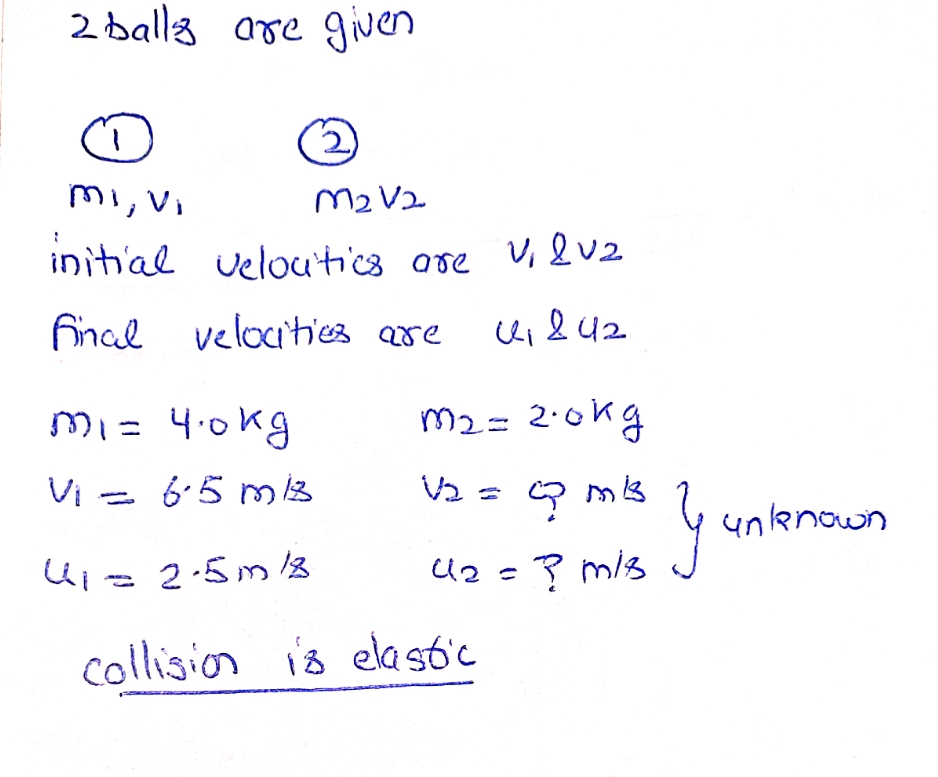 2 balls are given
1 2
m1, v1 m2 v2
initial velocities are v1 & v2
final velocities are u1 & u2
m1 = 4.0 kg m2 = 2.0 kg
v1 = 6.5 m/s v2 = ? m/s } unknown
u1 = 2.5 m/s u2 = ? m/s
collision is elastic